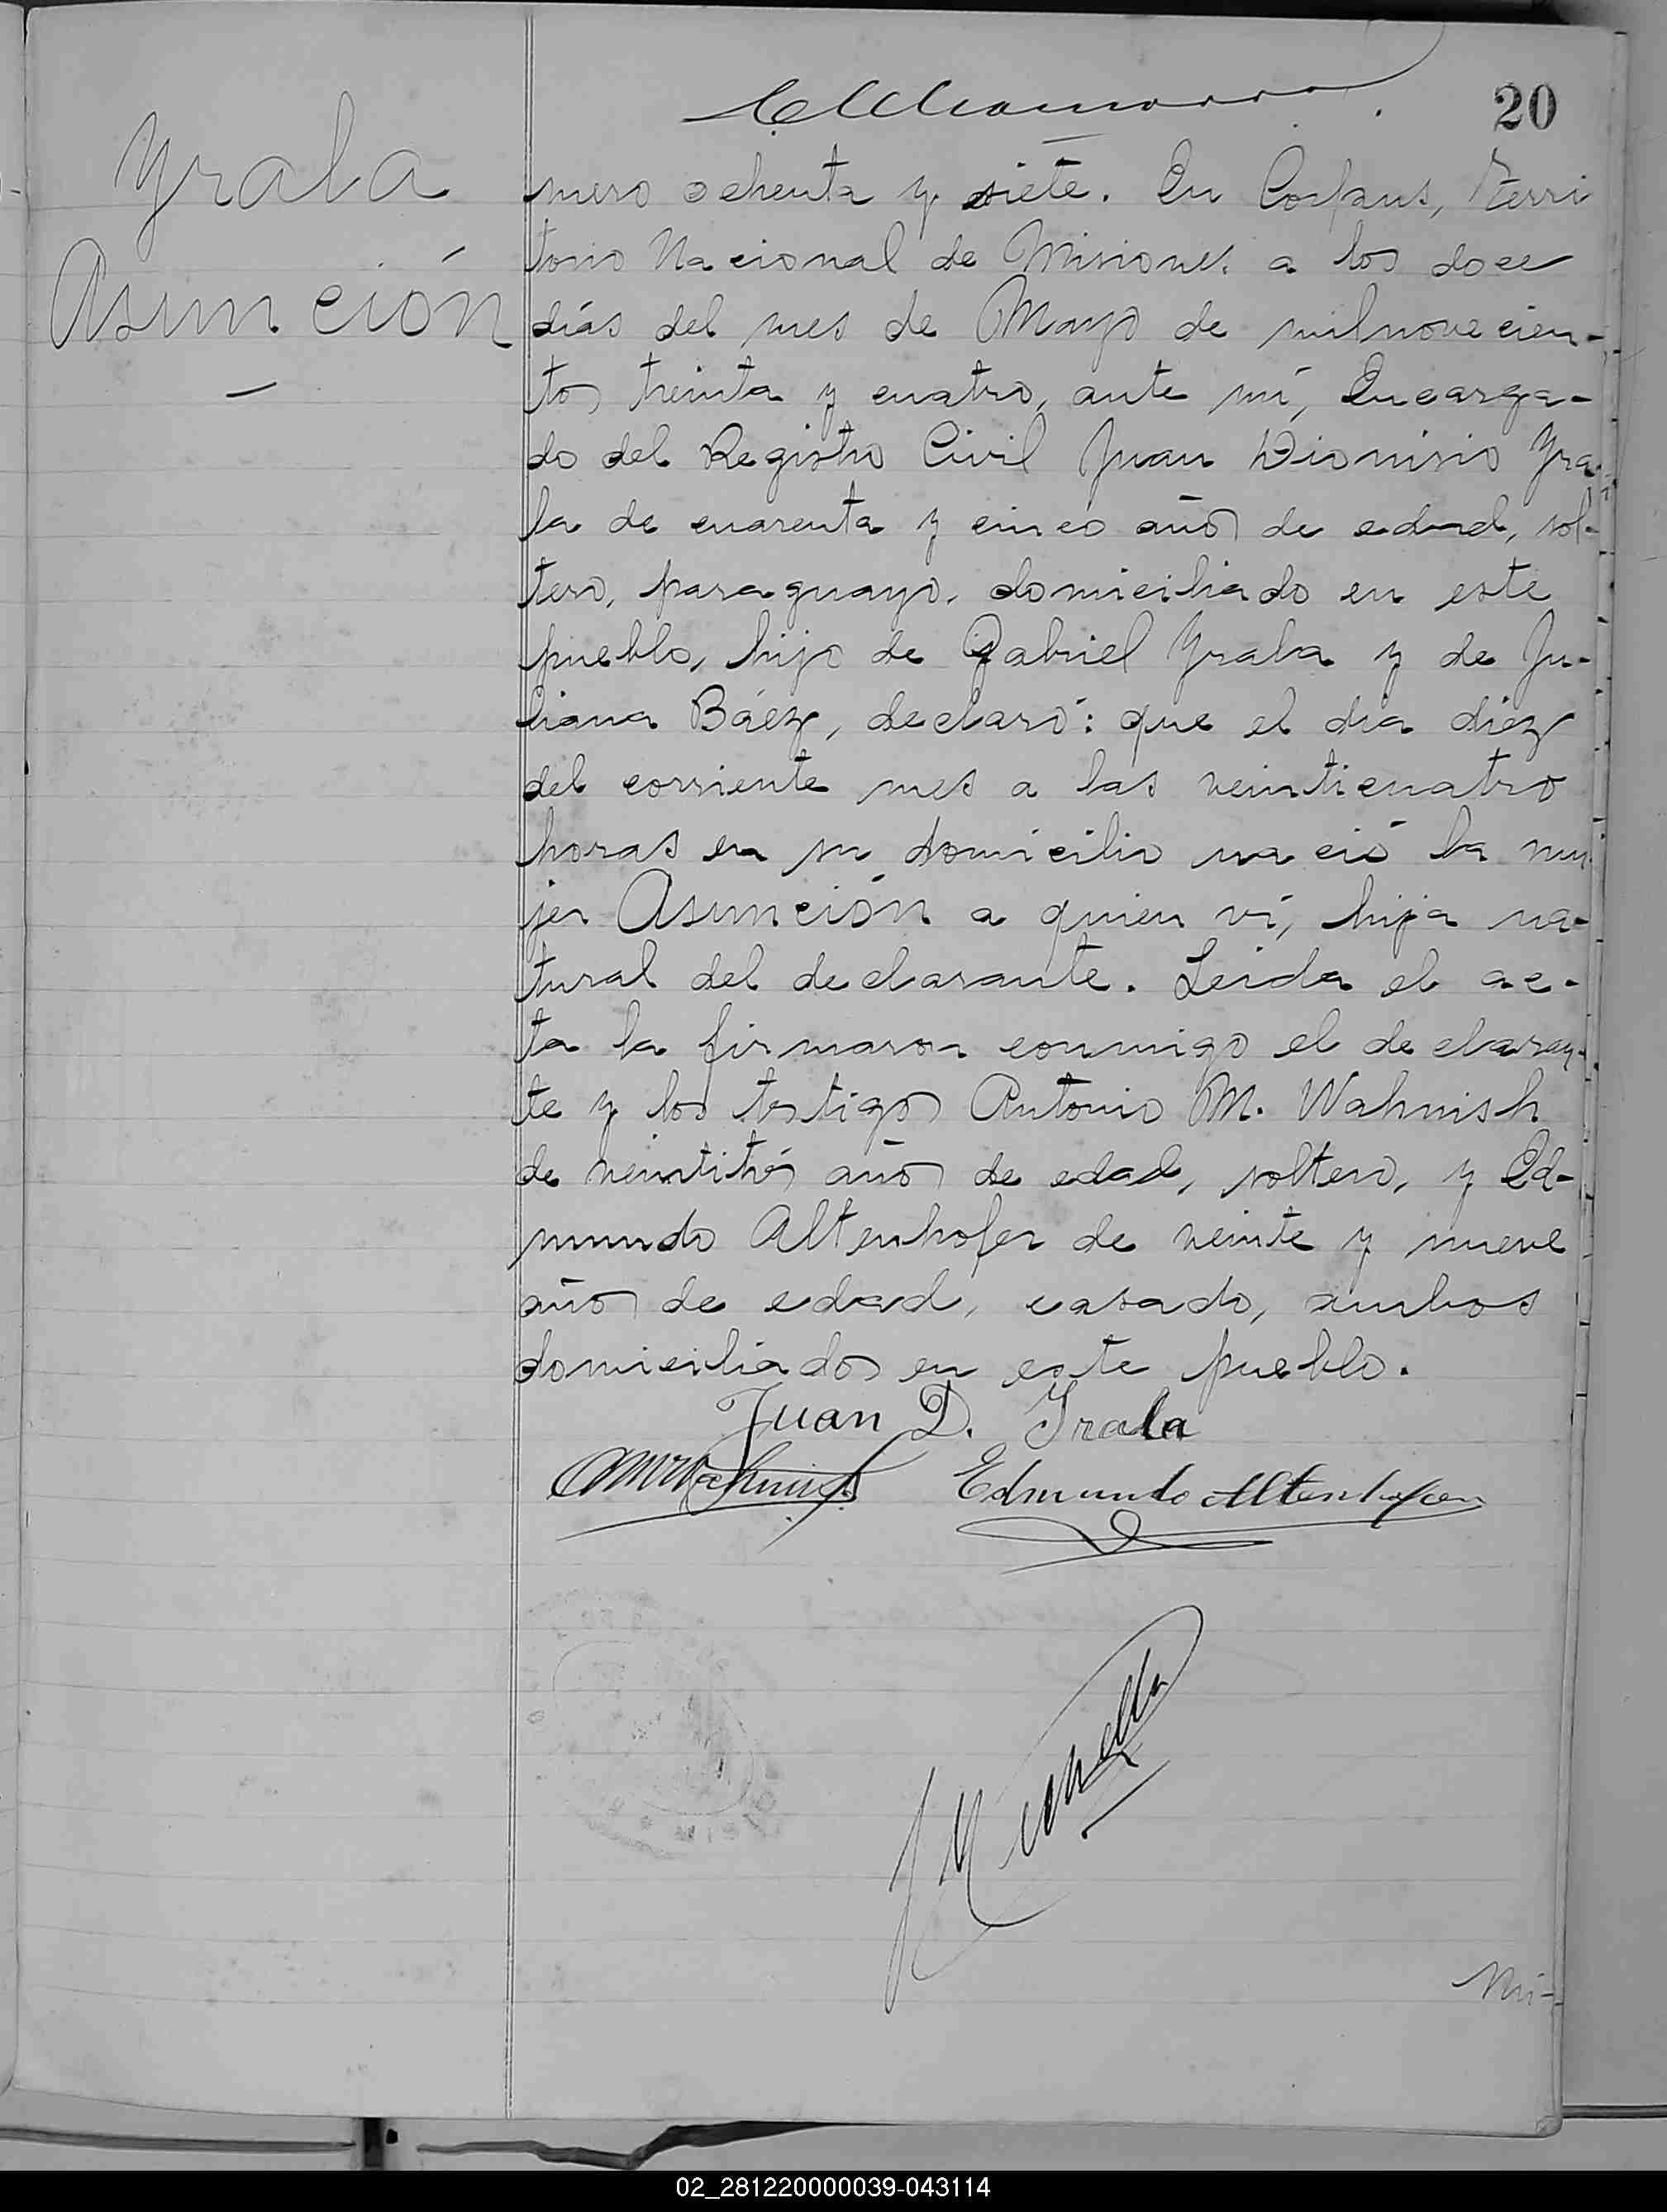 20
Yrala
Asunción
mero ochenta y siete. En Corpus, Terri
torio Nacional de Misiones. a los doce
días del mes de Mayo de mil novecien-
tos treinta y cuatro, ante mí, Encarga-
do del Registro Civil Juan Dionisio Yra-
la de cuarenta y cinco años de edad, sol-
tero, paraguayo, domiciliado en este
pueblo, hijo de Gabriel Yrala y de Ju-
liana Báez, declaró: que el dia diez
del corriente mes a las veinticuatro
horas en su domicilio nació la mu
jer Asunción a quien ví, hija na-
tural del declarante. Leida el ac-
ta la firmaron conmigo el declaran-
te y los testigos Antonio M. Wahnish
de veintitrés años de edad, soltero, y Ed-
mundo Altenhofer de veinte y nueve
años de edad, casado, ambos
domiciliados en este pueblo.
Juan D. Irala
AMWahnish Edmundo Altenhofer
Nú-
02_281220000039-043114